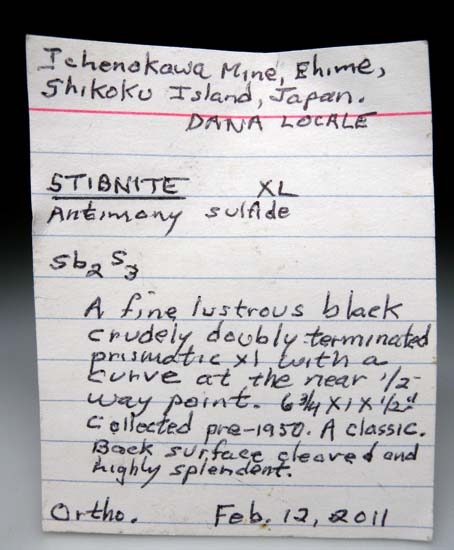 Ichenokawa Mine, Ehime,
Shikoku Island, Japan.
DANA LOCALE
STIBNITE XL
Antimony sulfide
Sb2 S3
A fine lustrous black
crudely doubly terminated
prismatic xl with a
curve at the near 1/2-
way point. 6 3/4 x 1 x 1/2"
Collected pre-1950. A classic.
Back surface cleaved and
highly splendent.
Ortho. Feb. 12, 2011